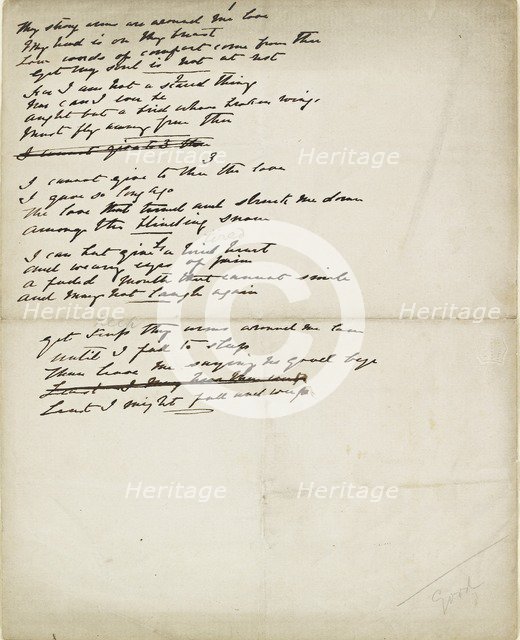 Thy strong arms are around me love
My head is on thy breast
Low words of comfort come from thee
Yet my soul is not at rest
For I am not a startled thing
Nor can I ever be
Aught but a bird whose broken wing
Must fly away from thee
I cannot give to thee
I cannot give to thee the love
I gave so long ago
The love that turned and struck me down
Among the blinding snow
I can but give a tired heart
And weary eyes of pain
A faded mouth that cannot smile
And may not laugh again
Yet keep thy arms around me love
Until I fall to sleep
Then leave me saying no good bye
Least I might fall and weep
Good
Heritage
Heritage
Heritage
Heritage
Heritage
Heritage
Heritage
Heritage
Heritage